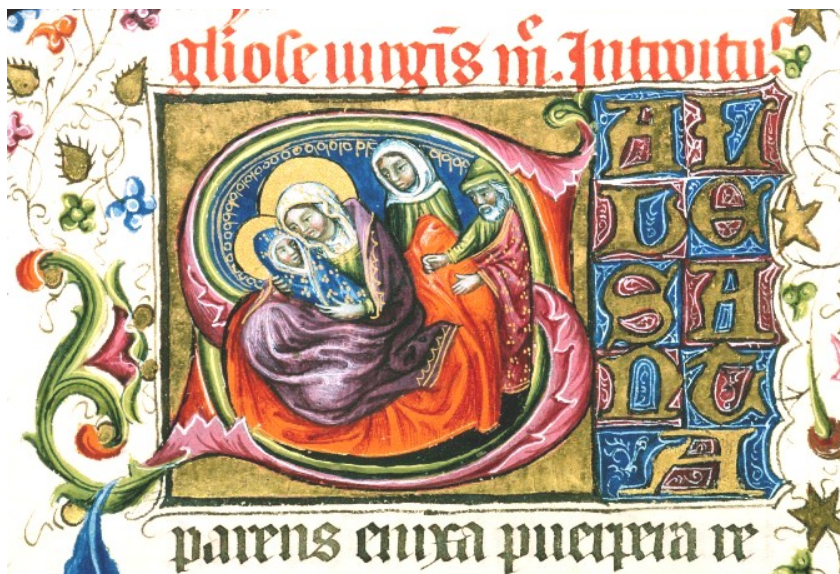 gliose uirgīs m̄. Introitus
SAL
VE
SA
NT
A
parens enixa puerpera re